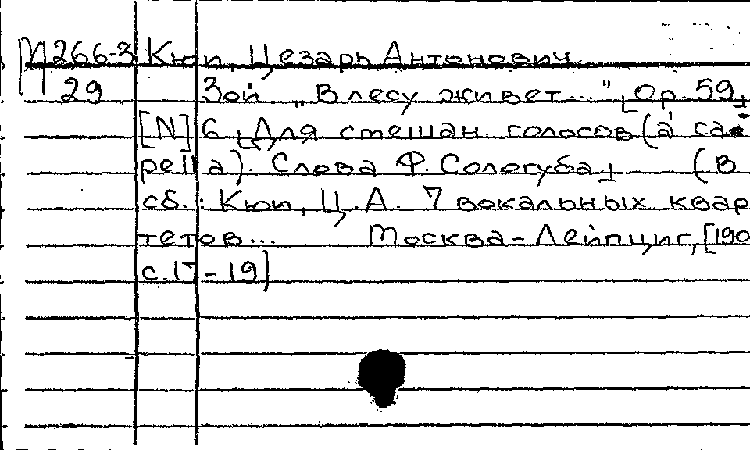 М266-3 Кюи, Цезарь Антонович
29 Зой „В лесу живет...", Op. 59,
[N] 6. Для смешан голосов (a ca
pella). Слова Ф. Сологуба. (В
сб.: Кюи, Ц. А. 7 вокальных квар
тетов... Москва-Лейпциг, [190
с. 17-19]